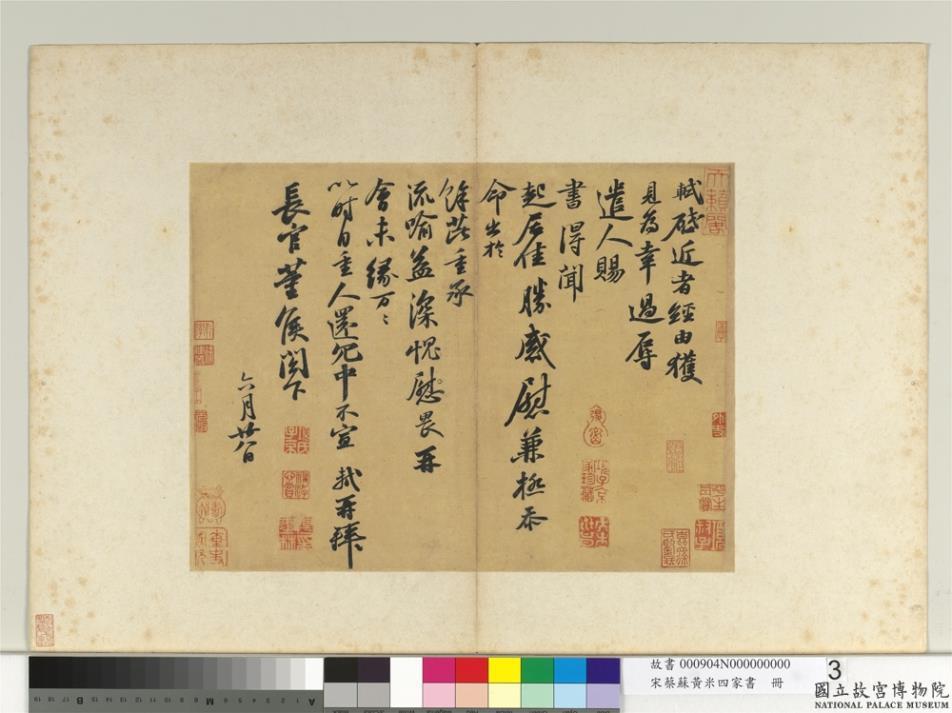 軾啓近者經由獲
見為幸過辱
遣人賜
書得聞
起居佳勝感慰兼極忝
命出於
餘芘重承
流喻益深愧慰畏再
會未緣万〻
以時自重人還冗中不宣 軾再拜
長官董侯閣下
六月廿八日
天籟閣
故書 000904N000000000
宋蔡蘇黃米四家書 冊
3
國立故宮博物院
NATIONAL PALACE MUSEUM